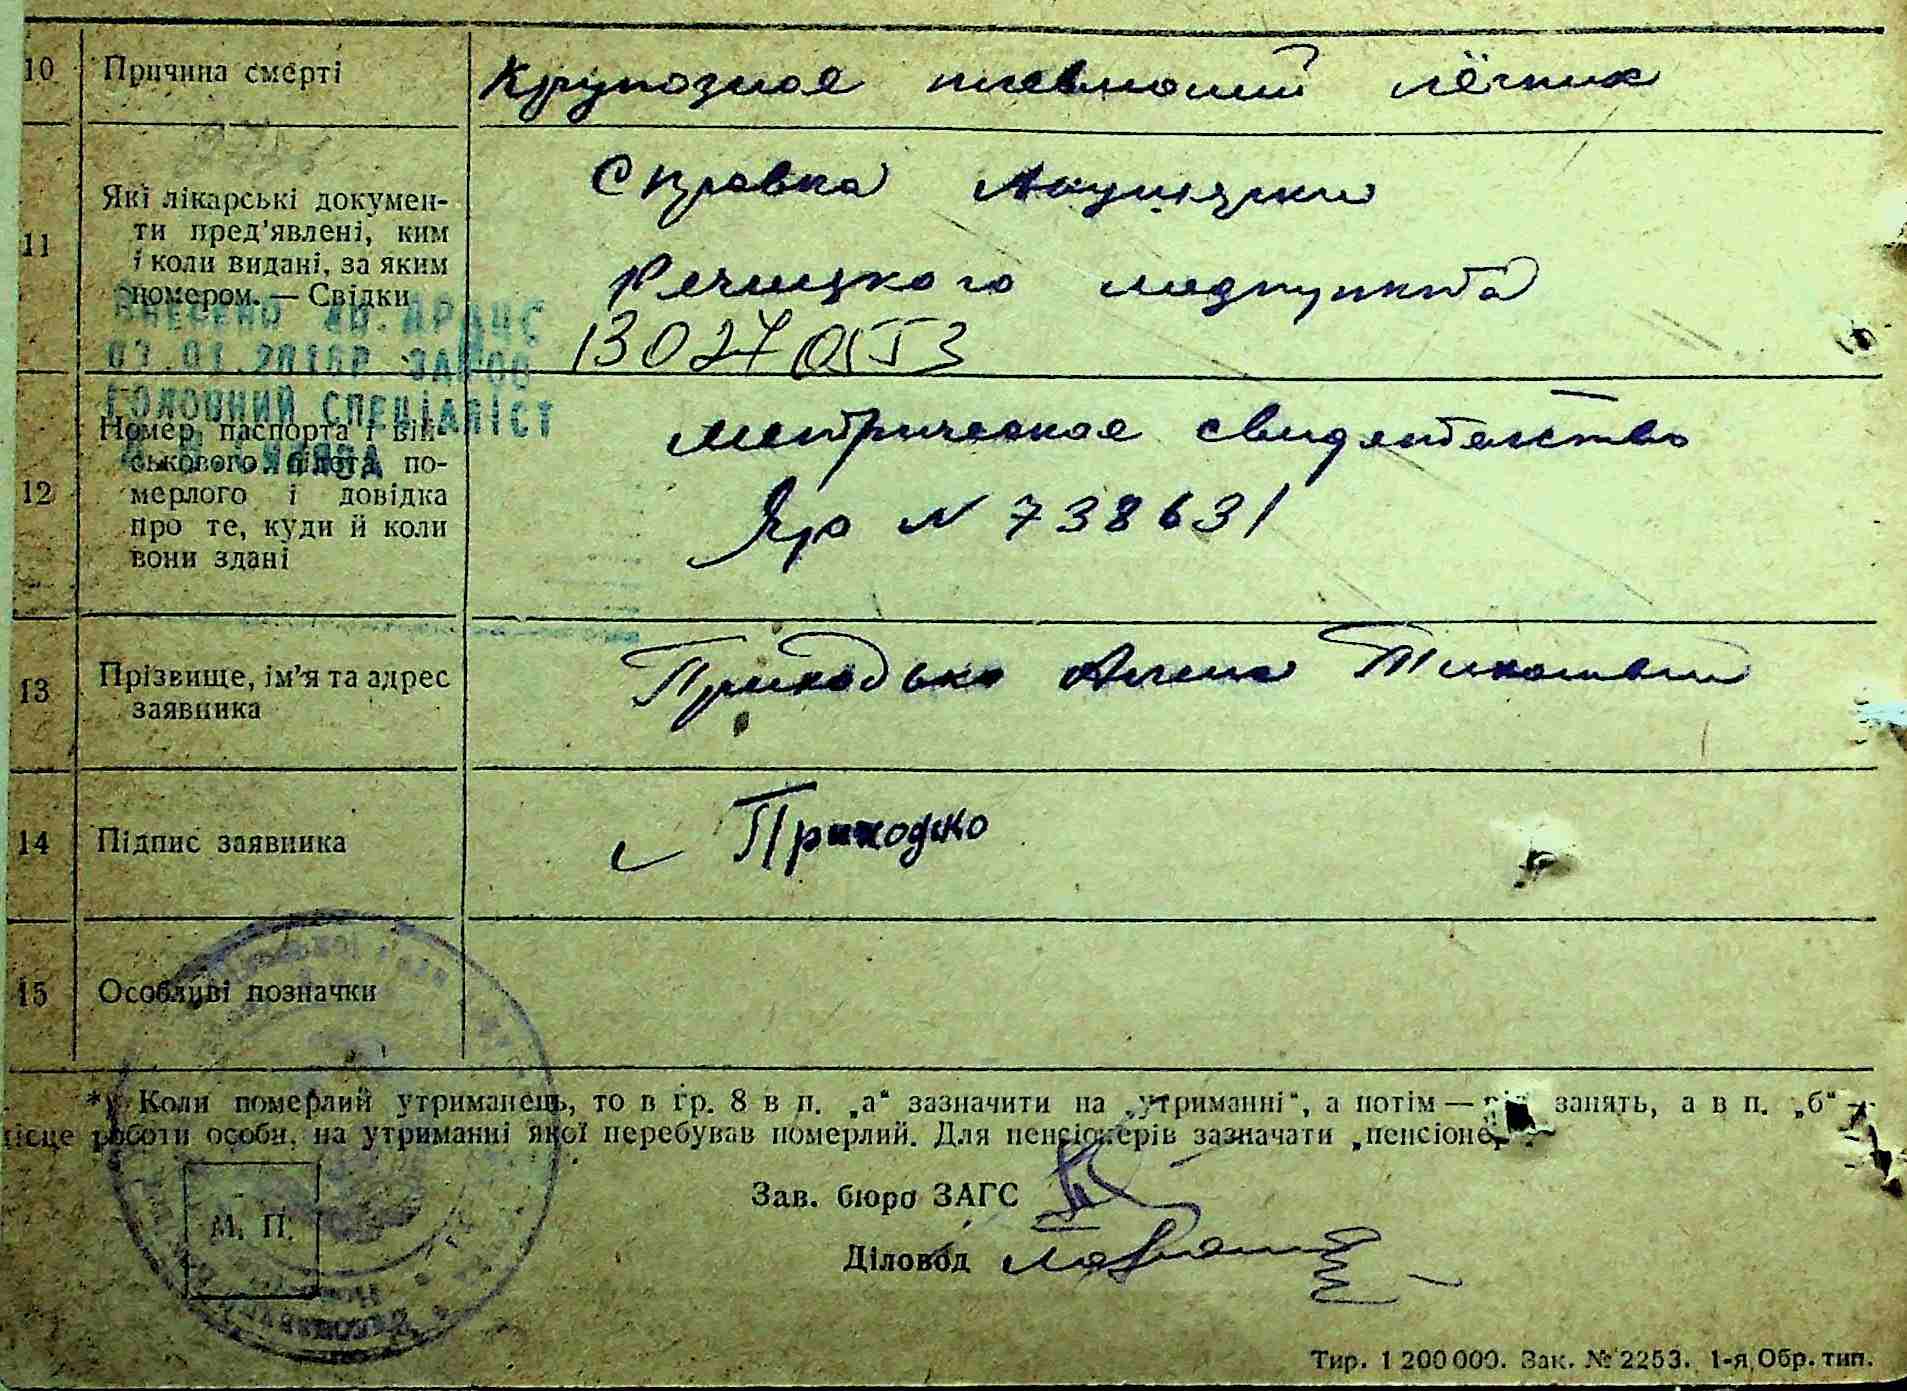 10 Причина смерті Крупозная пневмоний лёгких
Які лікарські докумен-
Справка Акушерки
ти пред'явлені, ким
11 і коли видані, за яким
Речицкого медпункта
номером. — Свідки
130270553
ВНЕСЕНО ДО ДРАЦС
ГОЛОВНИЙ СПЕЦІАЛІСТ
Номер паспорта і вій-
метрическая свидетельство
ськового білета по-
12 мерлого і довідка
Яр N 738631
про те, куди й коли
вони здані
13 Прізвище, ім'я та адрес
Приходько
заявника
14 Підпис заявника Приходко
15 Особливі позначки
*) Коли померлий утриманець, то в гр. 8 в п. „а“ зазначити на „утриманні“, а потім — занять, а в п. „б“ —
місце роботи особи, на утриманні якої перебував померлий. Для пенсіонерів зазначати „пенсіонер
Зав. бюро ЗАГС
М. П.
Діловод
Тир. 1 200 000. Зак. № 2253. 1-я Обр. тип.